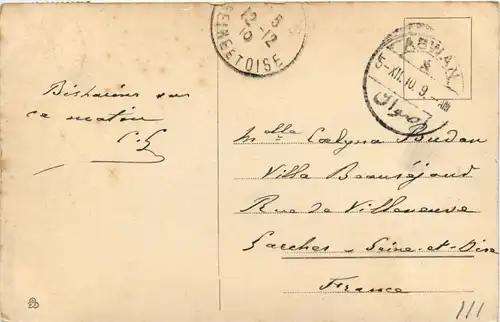 SEINE ET OISE
12-12
10
ASWAN
5-XII.10.9 - AM
اسوان
Bisharins vus
ce matin
C.G
Melle Calyxa Budan
Villa Beauséjour
Rue de Villeneuve
Garches - Seine-et-Oise
France
111